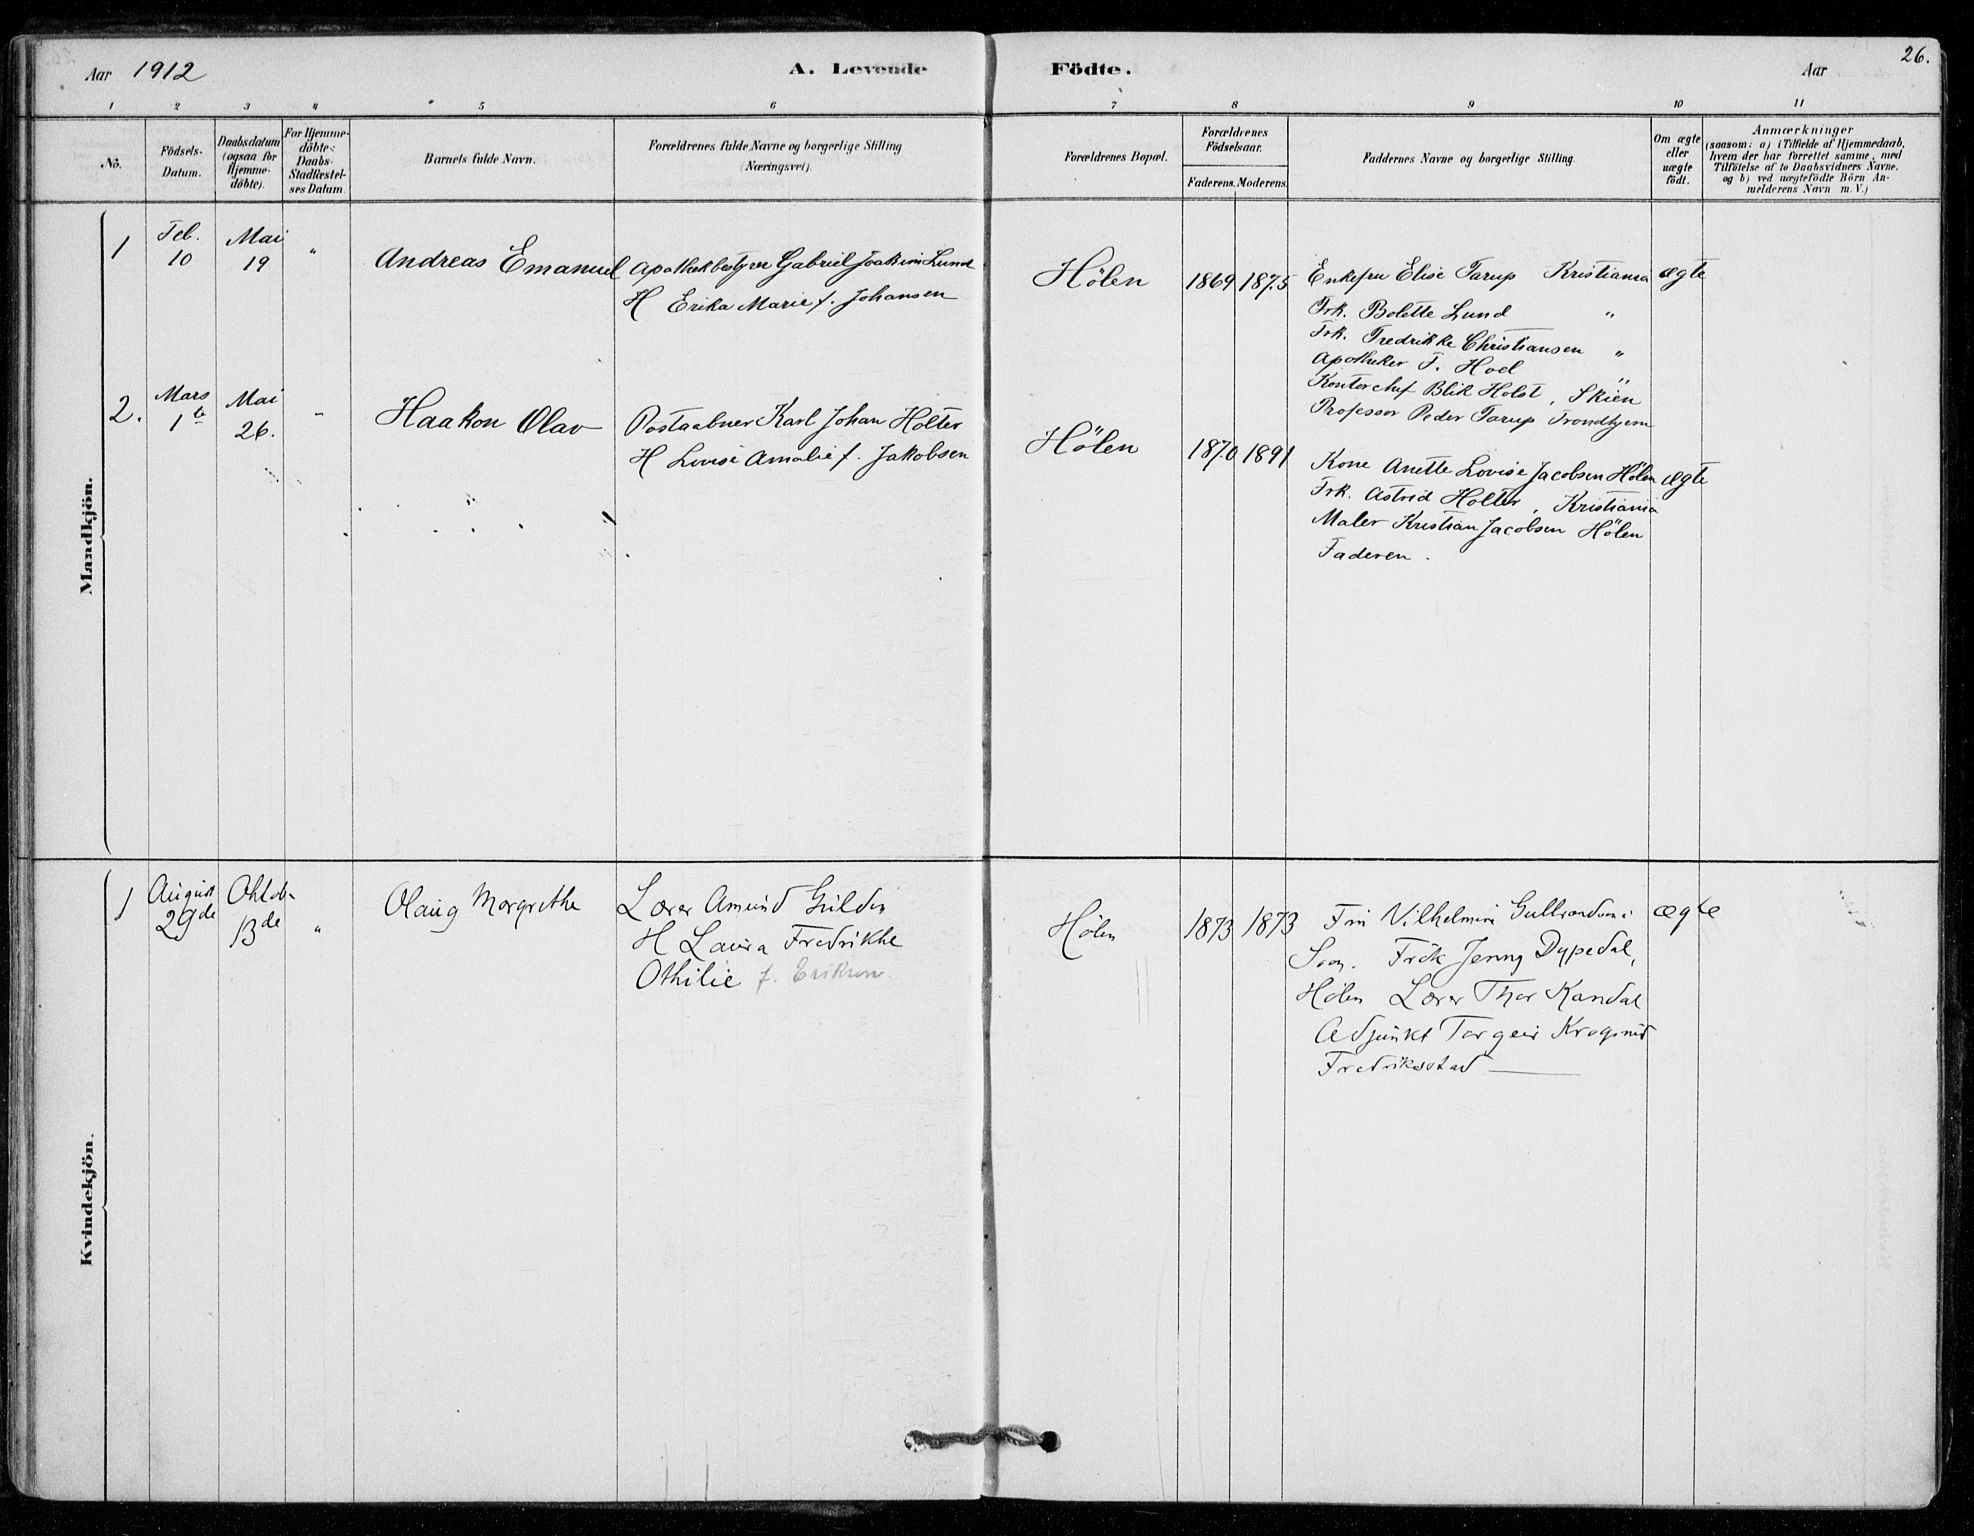 Aar 1912
A. Levende Födte.
Aar
26.
1 2 3 4 5 6 7 8 9 10 11
No.
Födsels-Datum.
Daabsdatum (ogsaa for Hjemme-döbte).
For Hjemme-döbte: Daabs-Stadfæstel-ses Datum
Barnets fulde Navn.
Forældrenes fulde Navne og borgerlige Stilling (Næringsvei).
Forældrenes Bopæl.
Forældrenes Födselsaar.
Faderens. Moderens.
Faddernes Navne og borgerlige Stilling.
Om ægte eller uægte födt.
Anmærkninger
(saasom: a) i Tilfælde af Hjemmedaab,
hvem der har forrettet samme, med
Tilföielse af to Daabsvidners Navne.
og b) ved uægtefödte Börn An-
melderens Navn m. V.)
Mandkjön.
1 Feb. 10 Mai 19 " Andreas Emanuel
Apothekbestyrer Gabriel Joakim Lund
H Erika Marie f. Johansen
Hölen 1869 1875
Enkefru Elise Tarup Kristiania ægte
Frk. Bolette Lund "
Frk. Fredrikke Christiansen "
Apotheker F. Hoel "
Kontorchef Blik Holst, Skien
Professor Peder Tarup Trondhjem
2. Mars 1 Mai 26. " Haakon Olav
Postaabner Karl Johan Holter
H Lovise Amalie f. Jakobsen
Hölen 1870 1891
Kone Anette Lovise Jacobsen Hölen ægte
Frk. Astrid Holter, Kristiania
Maler Kristian Jacobsen Hölen
Faderen.
Kvindekjön.
1 August 29de Oktob. 13de " Olaug Margrethe
Lærer Amund Guldin
H Laura Fredrikke
Othilie f.
Hölen 1873 1873
Fru Vilhelmine i ægte
Frök Jenny Dypedal,
Hölen Lærer Thor Kandal
Adjunkt Torgeir
Fredriksstad